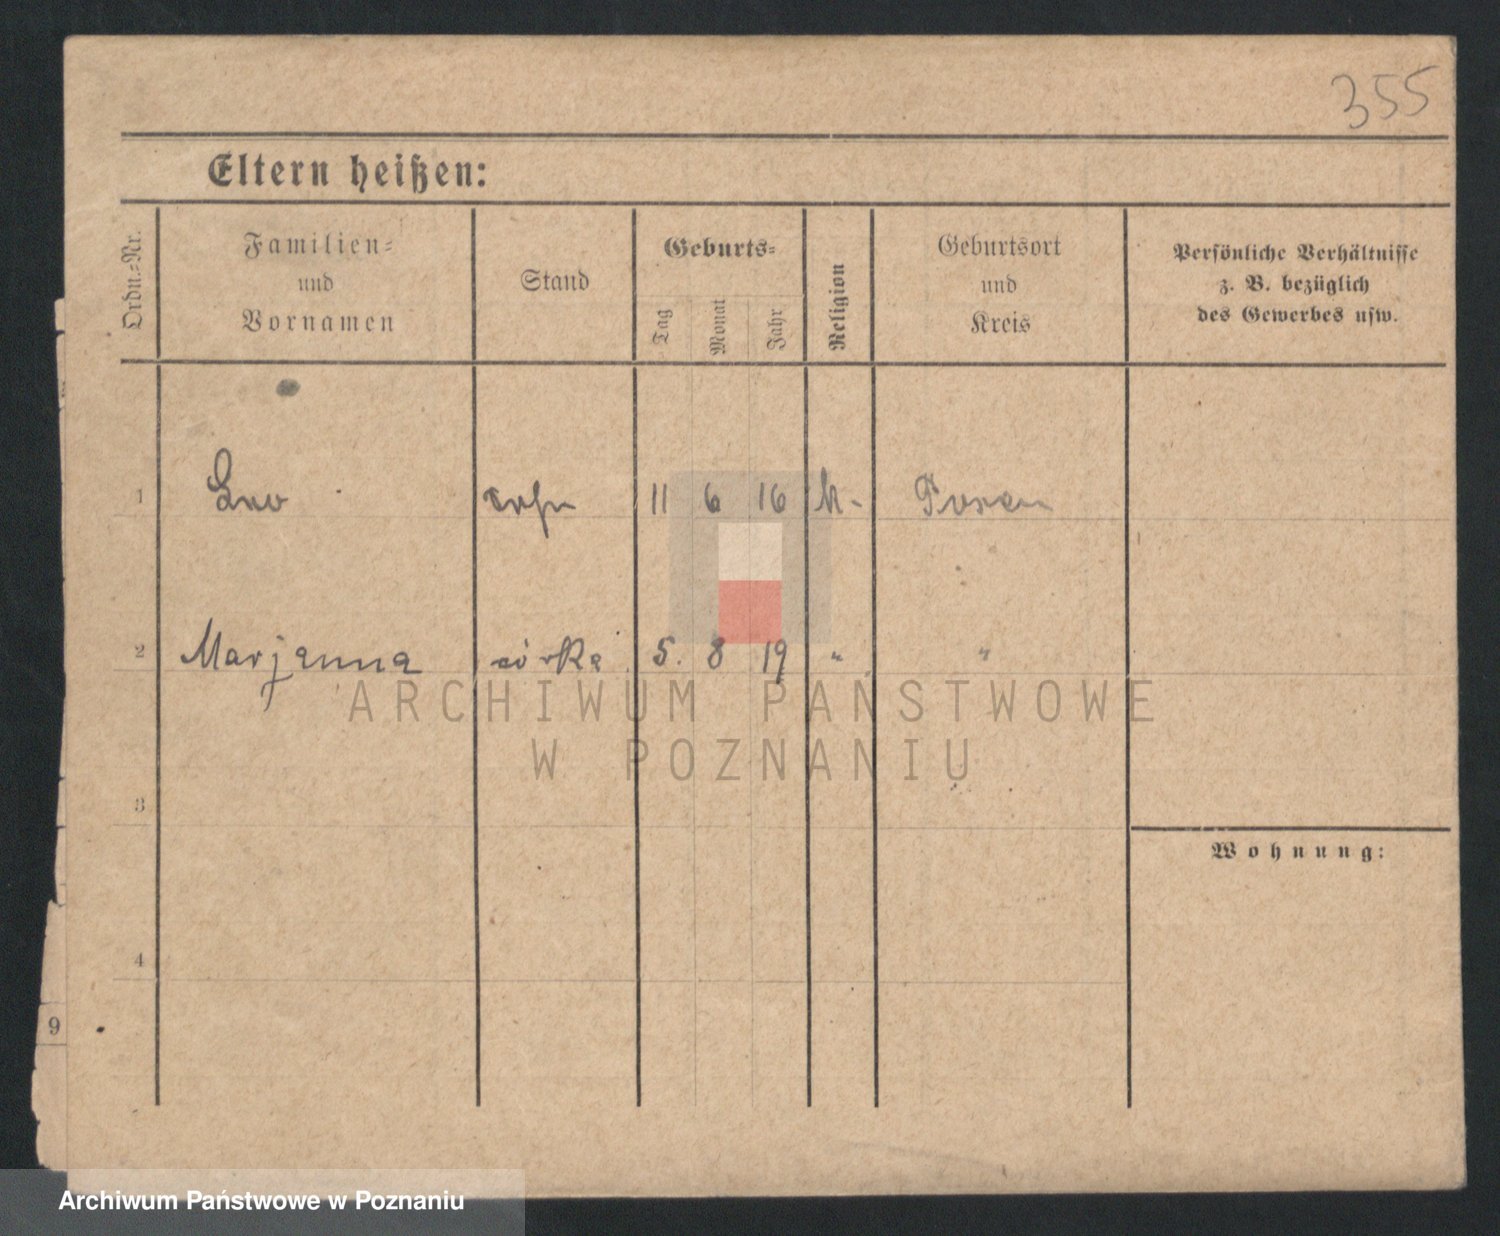 355
Eltern heißen:
Ordn.=Nr.
Familien=
und
Vornamen
Stand
Geburts=
Tag
Monat
Jahr
Religion
Geburtsort
und
Kreis
Persönliche Verhältnisse
z. B. bezüglich
des Gewerbes usw.
1 Leo 11 6 16 k. Posen
2 Marjanna córka 5. 8 19 " "
ARCHIWUM PAŃSTWOWE
W POZNANIU
3
Wohnung:
4
9
Archiwum Państwowe w Poznaniu